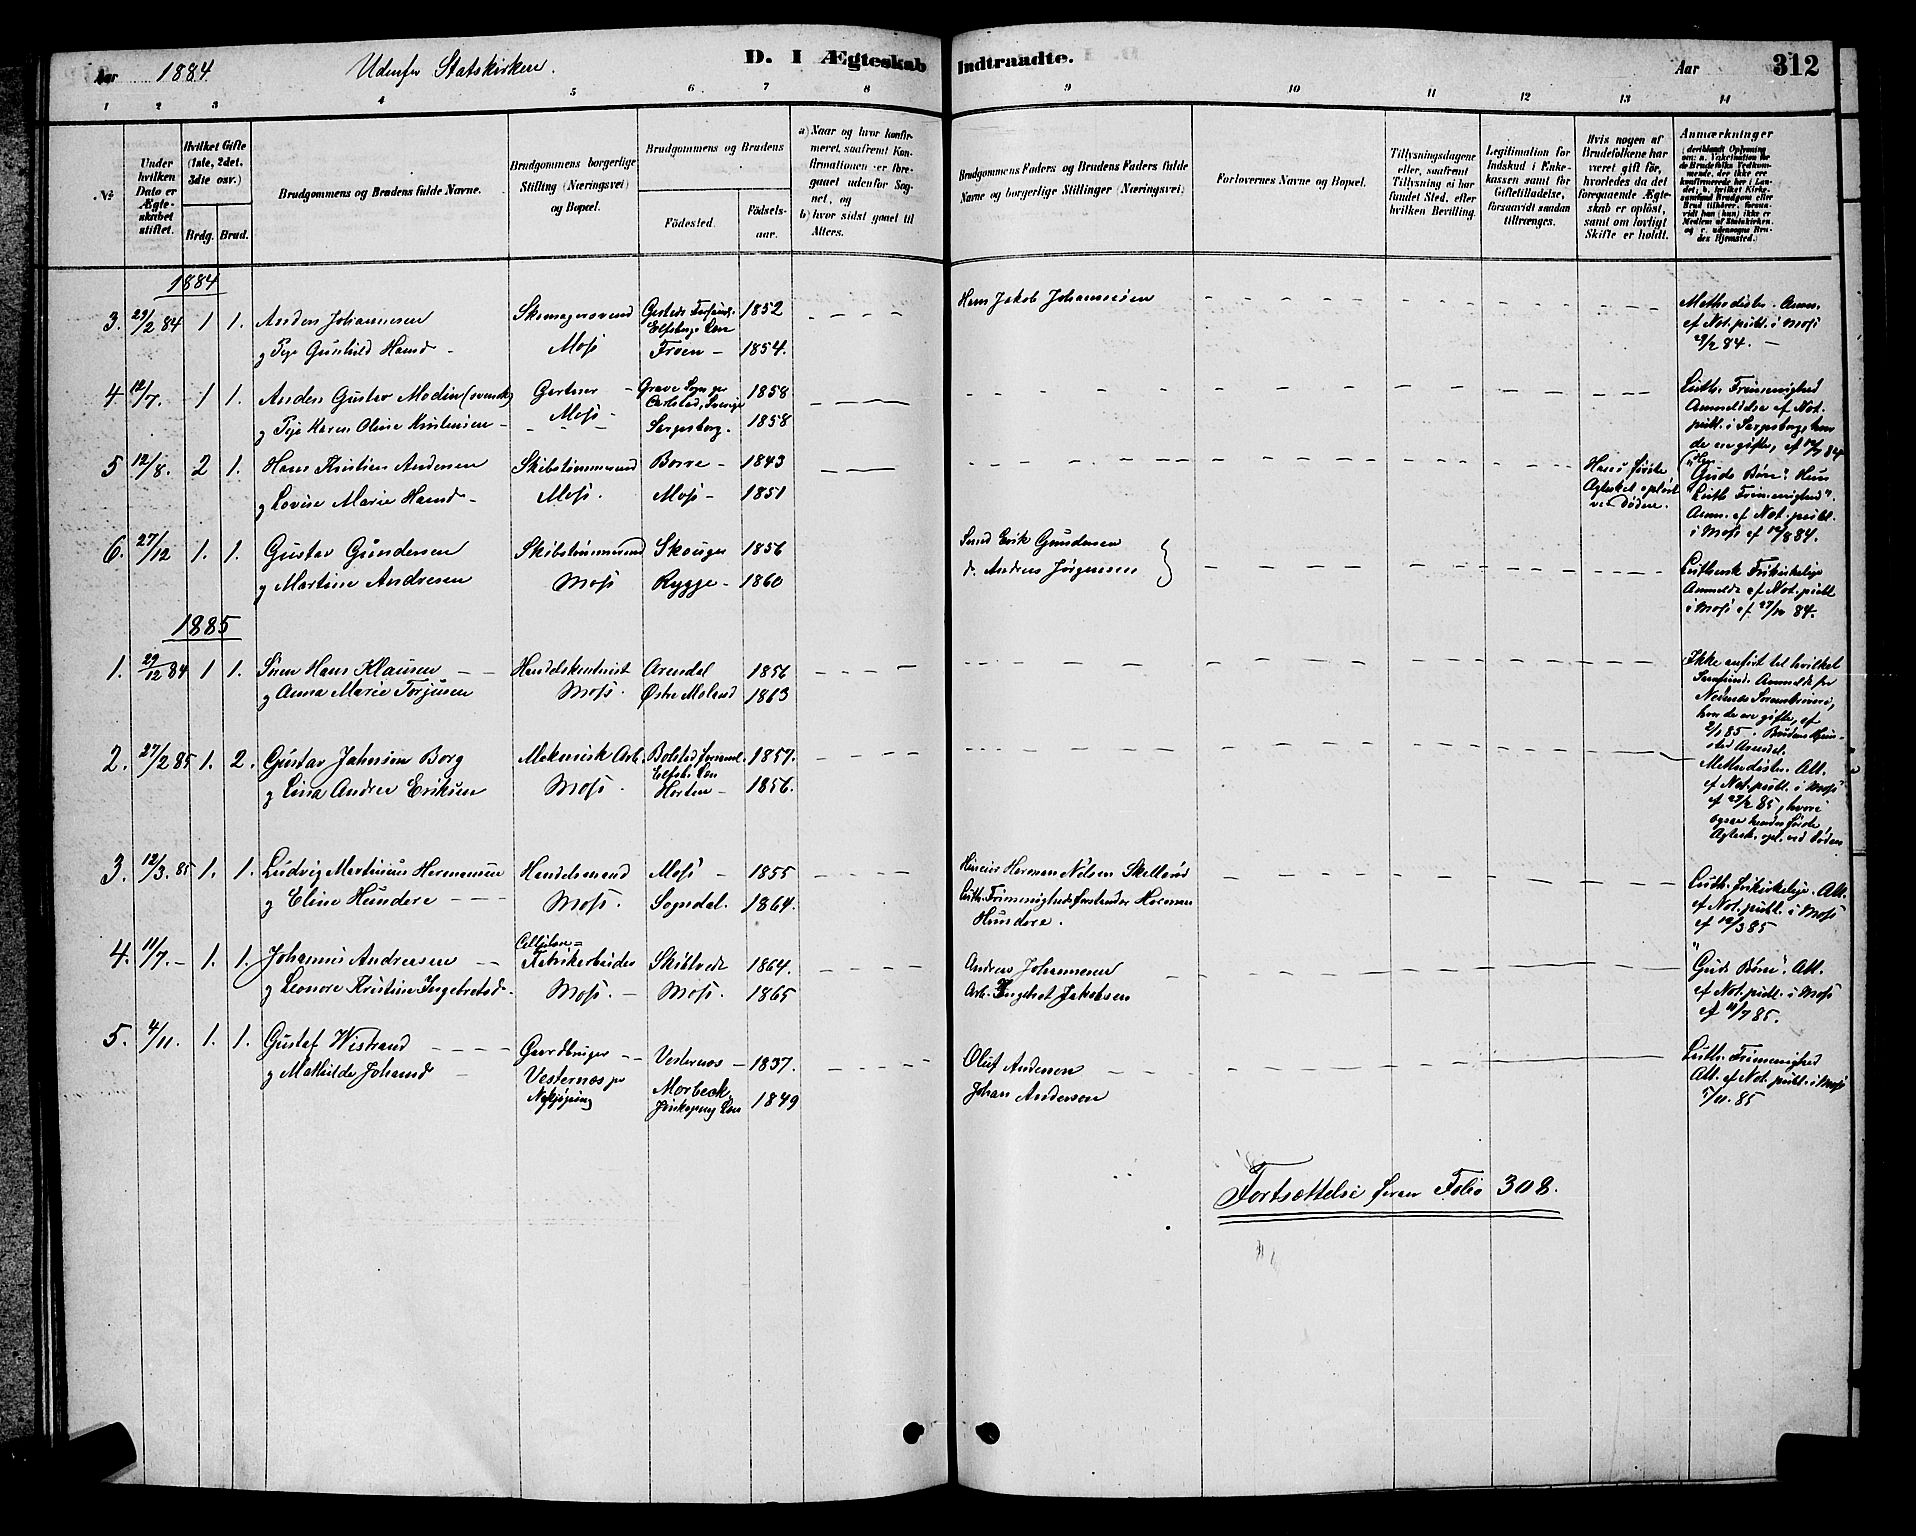 Aar 1884 Udenfor Statskirken. D. I Ægteskab Indtraadte. Aar 312
1 2 3 4 5 6 7 8 9 10 11 12 13 14
№
Under hvilken Dato er Ægteskabet stiftet.
Hvilket Gifte (1ste, 2det, 3die osv.)
Brdg. Brud.
Brudgommens og Brudens fulde Navne.
Brudgommens borgerlige Stilling (Næringsvei) og Bopæl.
Brudgommens og Brudens
Fødested.
Fødselsaar.
a) Naar og hvor konfirmeret, saafremt Konfirmationen er foregaaet udenfor Sognet, og
b) hvor sidst gaaet til Alters.
Brudgommens Faders og Brudens Faders fulde Navne og borgerlige Stillinger (Næringsvei).
Forlovernes Navne og Bopæl.
Tillysningsdagene eller, saafremt Tillysning ei har fundet Sted, efter hvilken Bevilling.
Legitimation for Indskud i Enkekassen samt for Giftetilladelse, forsaavidt saadan tiltrænges.
Hvis nogen af Brudefolkene har været gift før, hvorledes da det foregaaende Ægteskab er opløst, samt om lovligt Skifte er holdt.
Anmærkninger
1884
3. 29/2 84 1 1. Anders Johannesen Skomagersvend 1852 Hans Jakob Johannesen Methodister. Anm.
Moss Elfsborgs Len af Not. publ. i Moss
og Pige Gunhild Hansd. Frøen 1854. 29/2 84.
4 12/7. 1 1. Anders Gustav Modin (svensk) Gartner Grave Sogn pr 1858 Luth. Frimenighed
Moss Carlstad, Sverige Anmeldelse af Not.
og Pige Karen Oline Kristensen Sarpsborg. 1858 publ. i Sarpsborg, hvor
de ere gifte, af 12/7 84
5 12/8. 2 1. Hans Kristian Andersen Skibstømmermd Borre 1843 Hans første "Guds Børn". Hun
og Lovise Marie Hansd. Moss. Moss 1851 Ægtesk. opløst "Luth Frimenighed".
ved Døden. Anm. af Not. publ.
i Moss af 12/8 84.
6. 27/12 1. 1. Gustav Gundersen Skibstømmermd Skouger 1856 Smed Erik Gundersen
og Martine Andresen Moss Rygge 1860 d. Andreas Jørgensen Luthersk Frikirkelige
Anmeldt af Not. publ
i Moss af 27/12 84.
1885
1. 29/12 84 1 1. Søren Hans Klausen Arendal 1856 Ikke anført til hvilket
og Anna Marie Torjusen Moss. Østre Moland 1863 Samfund. Anmeldt fra
Nedenæs Sorenskriveri,
hvor de ere gifte, af
2/1 85. Brudens Hjemsted Arendal.
2. 27/2 85 1. 2. Gustav Johnsen Borg Mekanisk Arb. 1857. Methodister. Att.
Elfsb. Len af Not. publ. i Moss
og Lina Andrea Eriksen Moss. Horten 1856. af 27/2 85, hvori
ogsaa hendes første
Ægtesk. opl. ved Døden
3. 12/3. 85 1. 1. Ludvig Martinius Hermansen Handelsmand Moss 1855 Herman Nilsen Luth. frikirkelige. Att.
og Eline Hundere Moss. Sogndal. 1864. Luth. Frimenighedsforstander Herman af Not. publ. i Moss
Hundere. af 12/3 85
4. 11/7. 1. 1. Johannes Andreasen Cellulose= Fabrikarbeider Skibtvedt 1864. Andreas Johannesen "Guds Børn". Att.
og Leonore Kristine Ingebretsd. Moss. Moss. 1865 Arb. Ingebret Jakobsen af Not. publ. i Moss
af 11/7 85.
5. 4/11. 1. 1. Gustaf Wistrand Gaardbruger Vesternæs 1837. Oluf Anderson Luth. Frimenighed
og Mathilde Johansd. Vesternæs pr Morbeck, Johan Anderson Att. af Not. publ. i Moss
Nykjøping Jönköping Len 1849 5/11. 85
Fortsættelse foran Folio 308.